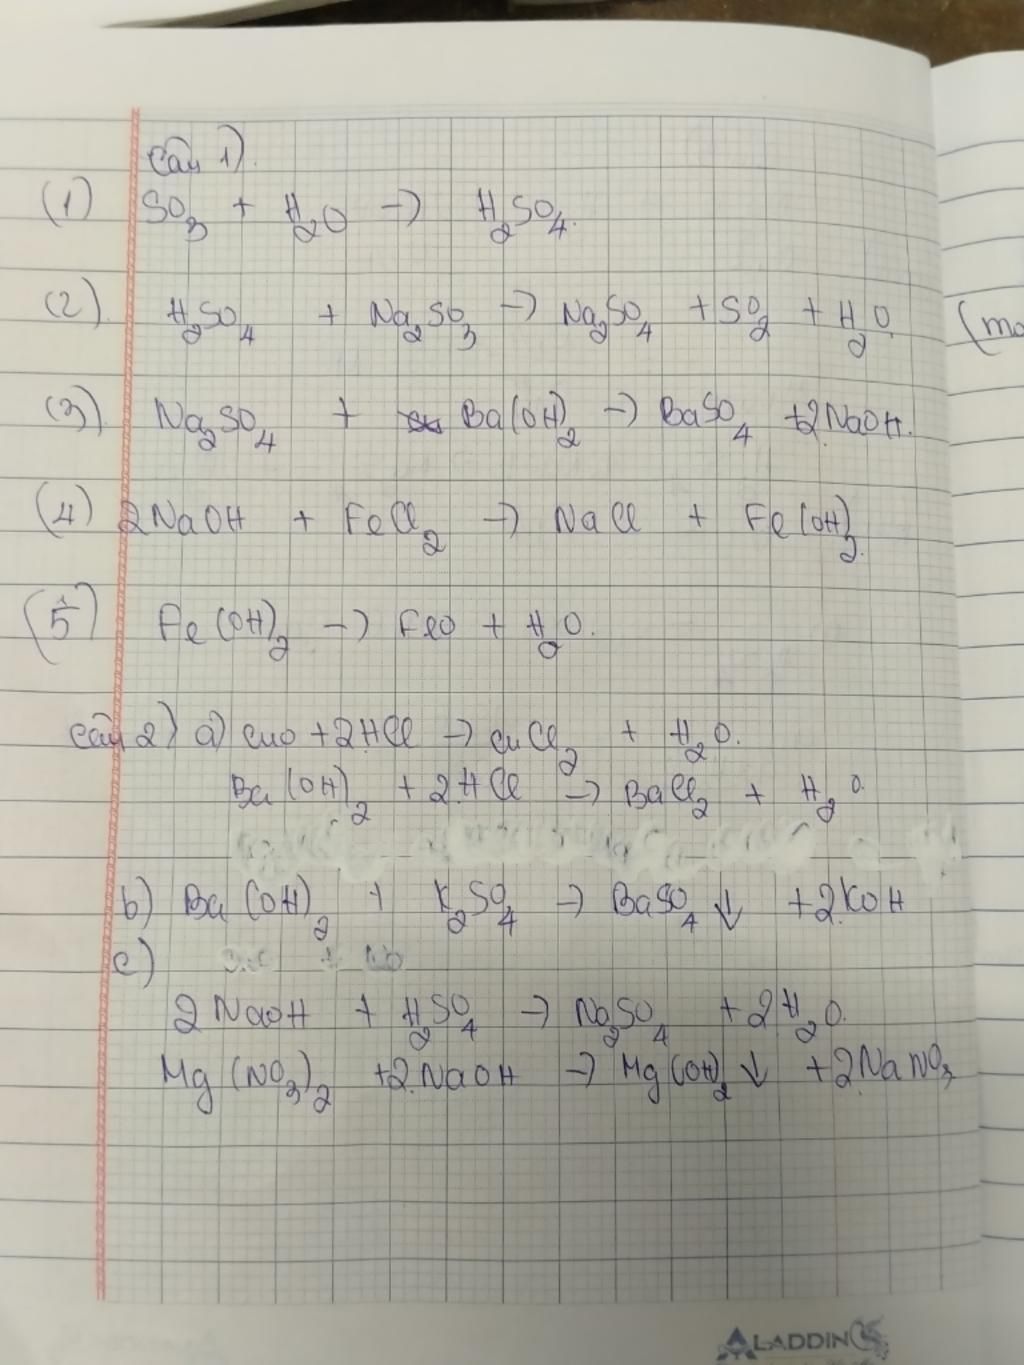 Câu 1).
(1) SO₃ + H₂O → H₂SO₄.
(2). H₂SO₄ + Na₂SO₃ → Na₂SO₄ + SO₂ + H₂O.
(3). Na₂SO₄ + Ba(OH)₂ → BaSO₄ +2NaOH.
(4) 2NaOH + FeCl₂ → NaCl + Fe(OH)₂.
(5) Fe(OH)₂ → FeO + H₂O.
Câu 2) a) CuO +2HCl → CuCl₂ + H₂O.
Ba(OH)₂ + 2HCl → BaCl₂ + H₂O.
b) Ba(OH)₂ + K₂SO₄ → BaSO₄ ↓ +2KOH
c)
2NaOH + H₂SO₄ → Na₂SO₄ +2H₂O.
Mg(NO₃)₂ +2NaOH → Mg(OH)₂ ↓ +2NaNO₃
ALADDIN